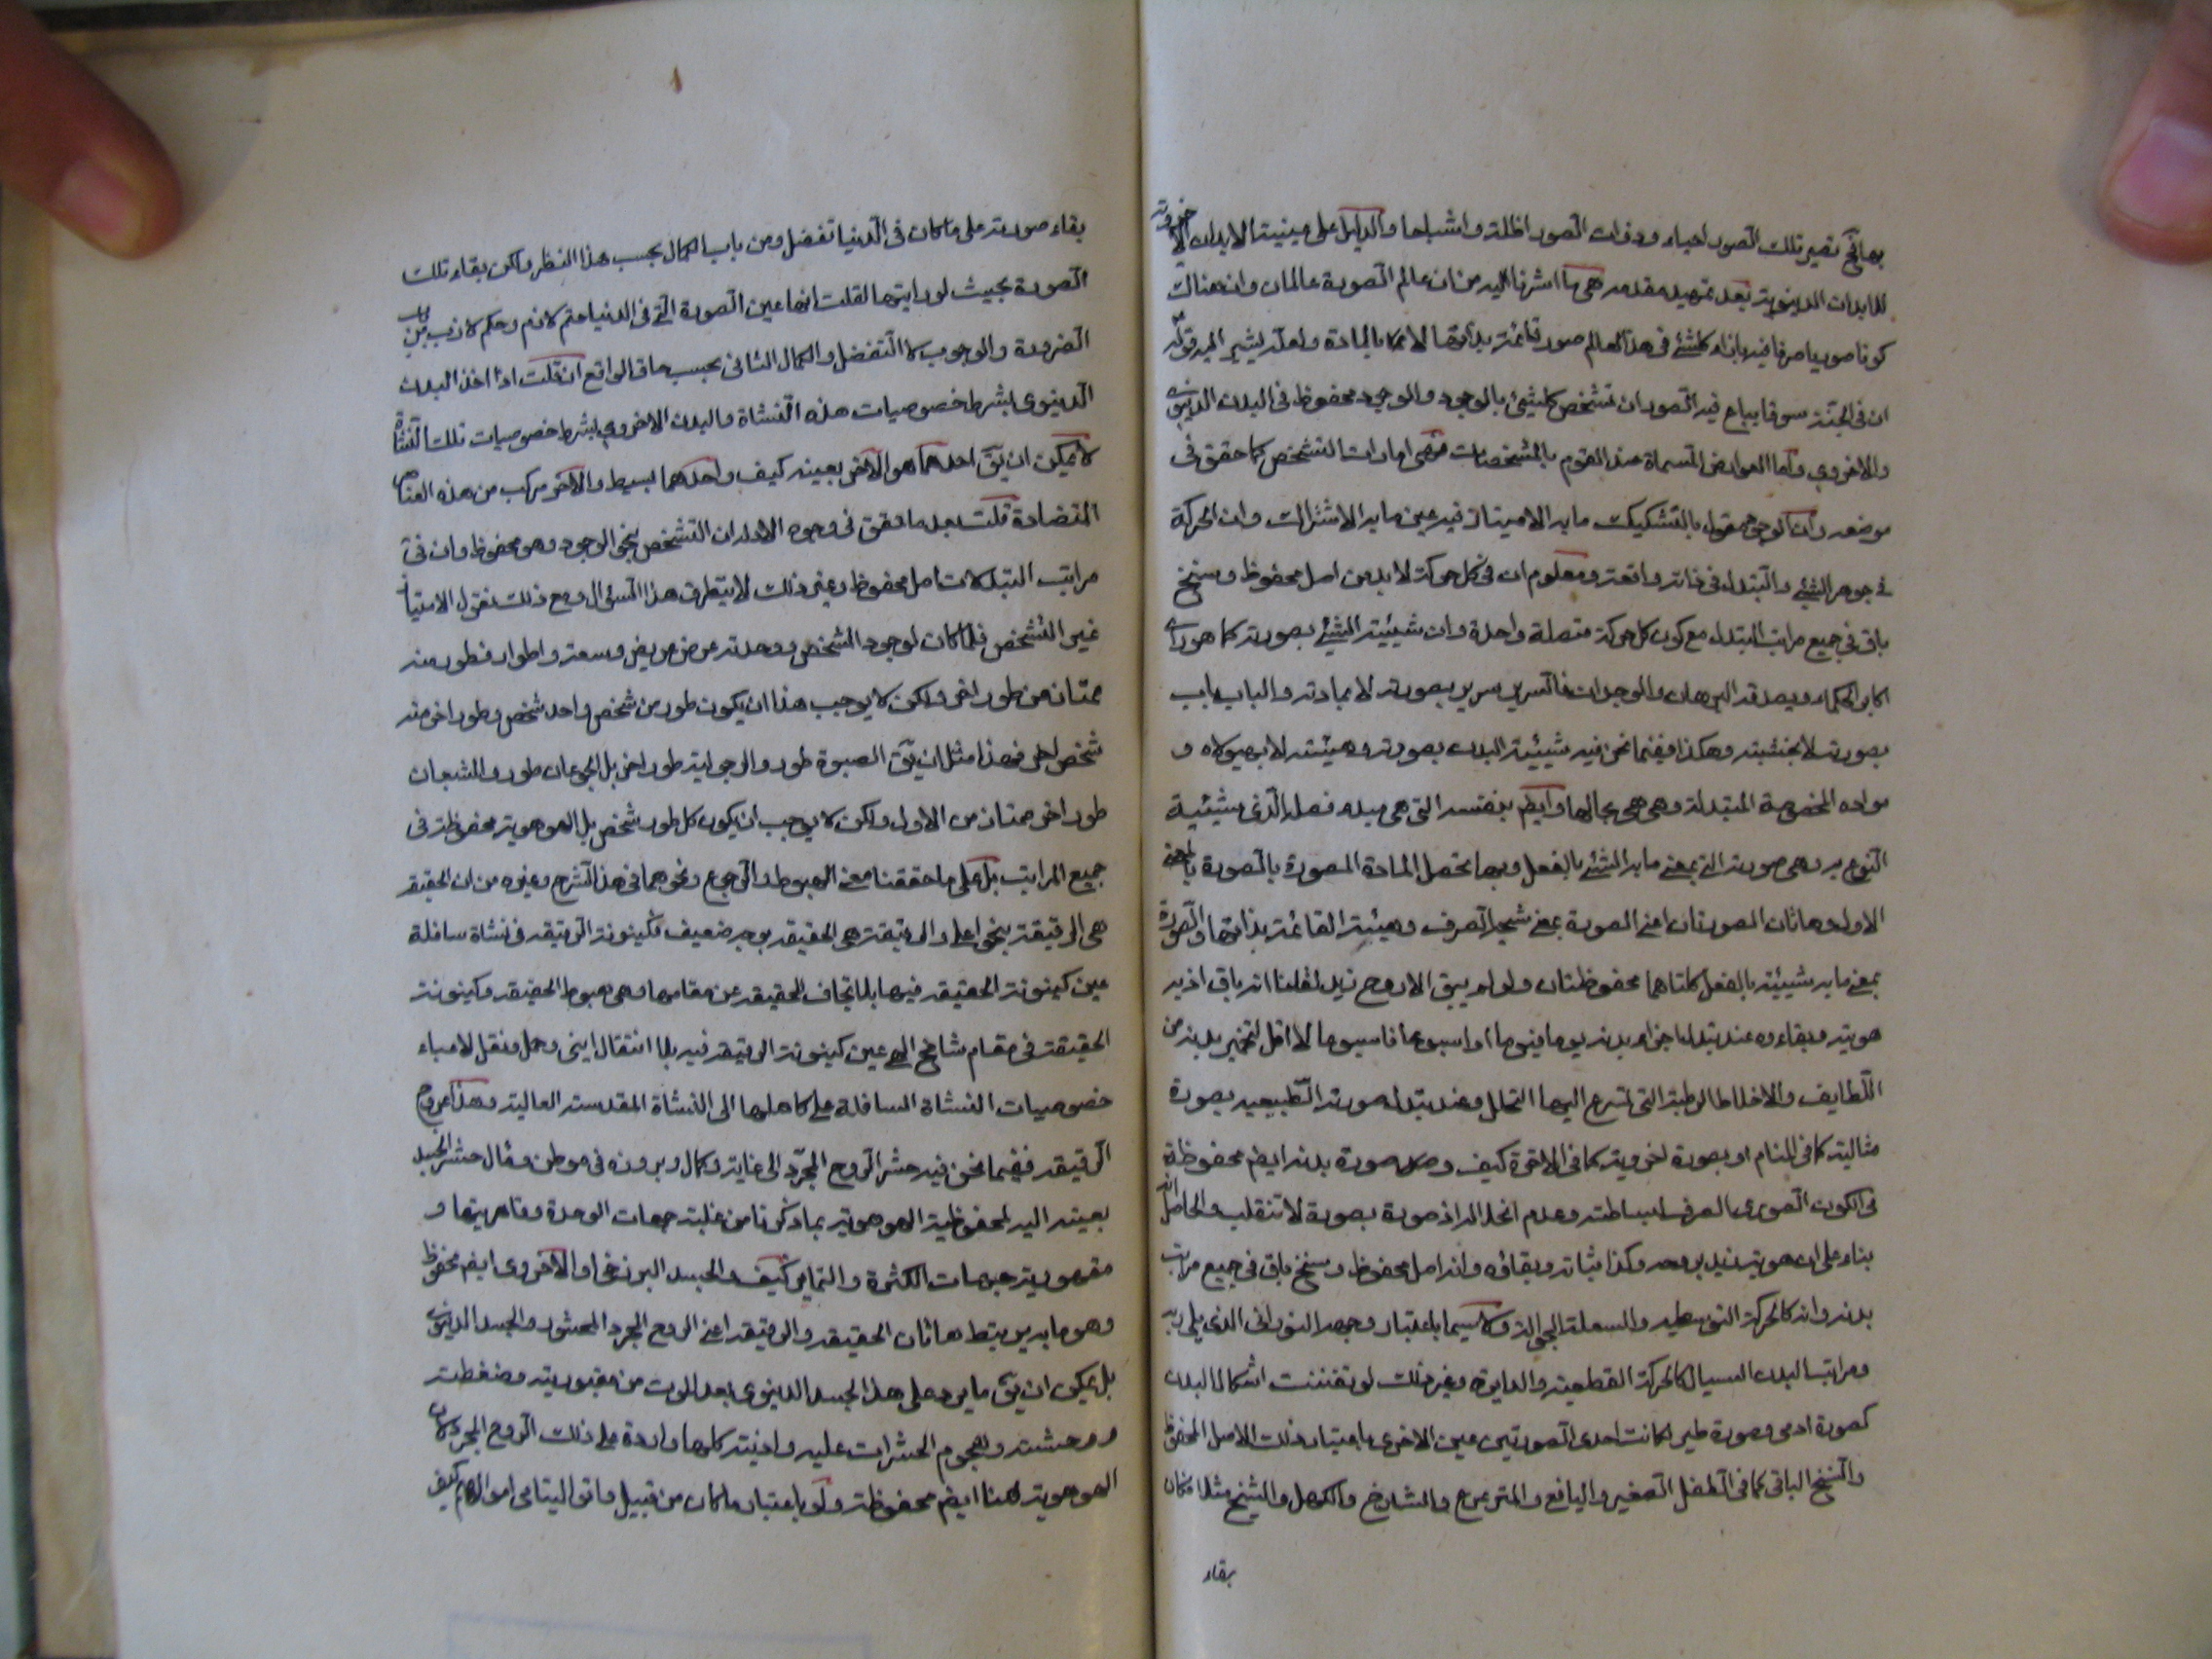 بها فح تصير تلك الصور احياء وذوات الصور اظلة واشباحا والدليل على عينية الابدان الاخروية
للابدان الدنيوية بعد تمهيد مقدمة هى ما اشرنا اليه من ان عالم الصورة عالمان وان هناك
كونا صوريا صرفا فيه بازاء كلشئ فى هذا العالم صور قائمة بذاتها لا بالمادة ولعله يشير اليه قوله
ان فى الجنة سوقا يباع فيه الصور ان تشخص كلشئ بالوجود والوجود محفوظ فى البدن الدنيوى
والاخروى واما العوارض المسماة عند القوم بالمشخصات فهى امارات التشخص كما حقق فى
موضعه وان الوجود مقول بالتشكيك ما به الامتياز فيه عين ما به الاشتراك وان الحركة
فى جوهر الشئ والتبدل فى ذاته واقعة ومعلوم ان فى كل حركة لا بد من اصل محفوظ وسنخ
باق فى جميع مراتب التبدل مع كون كل حركة متصلة واحدة وان شيئية الشئ بصورته كما هو راى
اكابر الحكماء ويصدقه البرهان والوجدان فالسرير سرير بصورته لا بمادته والباب باب
بصورته لا بخشبته وهكذا ففيما نحن فيه شيئية البدن بصورته وهيئته لا بهيولاه و
مواده المخصوصة المتبدلة وهى هى بحالها وايضا بنفسه التى هى مبدء فصله الذى شيئية
النوع به وهى صورته التى بمعنى ما به الشئ بالفعل وبها تحصل المادة المصورة بالصورة بالمعنى
الاول وهاتان الصورتان اعنى الصورة بمعنى شبح الصرف وهيئته القائمة بذاتها والصورة
بمعنى ما به شيئيته بالفعل كلتاهما محفوظتان ولو لم يبق الا روح زيد لقلنا انه باق اذ به
هويته وبقاءه عند تبدل اجزاء بدنه يوما فيوما او اسبوعا فاسبوعا لا اقل لتخمير بدنه من
اللطايف والاخلاط الرطبة التى تسرع اليها التحلل وعند تبدل صورته الطبيعية بصورة
مثالية كما فى المنام او بصورة اخروية كما فى الاخرة كيف وصورة بدنه ايضا محفوظة
فى الكون الصورى الصرف لبساطته وعدم انحلاله اذ صورة بصورة لا تنقلب والحاصل انه
بناء على ان هوية زيد بروحه وكذا ثباته وبقائه وانه اصل محفوظ وسنخ باق فى جميع مراتب
بدنه وانه كالحركة التوسطية والشعلة الجوالة ولا سيما باعتبار وجهه النورانى الذى يلى ربه
ومراتب البدن السيال كالحركة القطعية والدايرة وغير ذلك لو تفننت اشكال البدن
كصورة ادمى وصورة طير لكانت احدى الصورتين عين الاخرى باعتبار ذلك الاصل المحفوظ
والسنخ الباقى كما فى الطفل الصغير واليافع والمترعرع والشارخ والكهل والشيخ مثلا فكان
بقاء
بقاء صورته على ما كان فى الدنيا تفضل ومن باب الكمال بحسب هذا النظر ولكن بقاء تلك
الصورة بحيث لو رايتها لقلت انها عين الصورة التى فى الدنيا حتم لازم وحكم لازب من باب
الضرورة والوجوب لا التفضل والكمال الثانى بحسب ما فى الواقع ان قلت اذا اخذ البدن
الدنيوى بشرط خصوصيات هذه النشاة والبدن الاخروى بشرط خصوصيات تلك النشاة
لا يمكن ان يق احدهما هو الاخر بعينه كيف واحدهما بسيط والاخر مركب من هذه العناصر
المتضادة قلت بعد ما تحقق فى وجوه الادلة ان التشخص بنحو الوجود وهو محفوظ وان فى
مراتب التبدلات اصل محفوظ وغير ذلك لا يتطرق هذا السئوال ومع ذلك نقول الامتياز
غير التشخص فلما كان لوجود الشخص ووحدته عرض عريض وسعة واطوار فطور منه
ممتاز من طور اخر ولكن لا يوجب هذا ان يكون طور من شخص واحد شخص وطور اخر منه
شخص اخر فهذا مثل ان يق الصبوة طور والرجولية طور اخر بل الجوعان طور والشبعان
طور اخر ممتاز من الاول ولكن لا يوجب ان يكون كل طور شخص بل الهو هوية محفوظة فى
جميع المراتب بل على ما حققنا معنى الهبوط والرجوع ونحوهما فى هذا الشرح وغيره من ان الحقيقة
هى الرقيقة بنحو اعلى والرقيقة هى الحقيقة بوجه ضعيف فكينونة الرقيقة فى نشاة سافلة
عين كينونة الحقيقة فيها بلا تجاف للحقيقة عن مقامها وهى هبوط الحقيقة وكينونة
الحقيقة فى مقام شامخ الهى عين كينونة الرقيقة فيه بلا انتقال اينى وحمل ونقل لاعباء
خصوصيات النشاة السافلة على كاهلها الى النشاة المقدسة العالية وهذا عروج
الرقيقة ففيما نحن فيه حشر الروح المجرد الى غاية وكمال وبروزه فى موطن ومثال حشر الجسد
بعينه اليه لمحفوظية الهو هوية بما ذكرنا من غلبة جهات الوحدة وقاهريتها و
مقهورية جهات الكثرة والتمايز كيف والجسد البرزخى او الاخروى ايضا محفوظ
وهو ما به يرتبط هاتان الحقيقة والرقيقة اعنى الروح المجرد المحشور والجسد الدنيوى
بل يمكن ان يق ما يرد على هذا الجسد الدنيوى بعد الموت من مقبوريته وضغطته
ووحشته وهجوم الحشرات عليه واذيته كلها واردة على ذلك الروح المجرد لان
الهو هوية هنا ايضا محفوظة ولو باعتبار ما كان من قبيل واتوا اليتامى اموالهم كيف